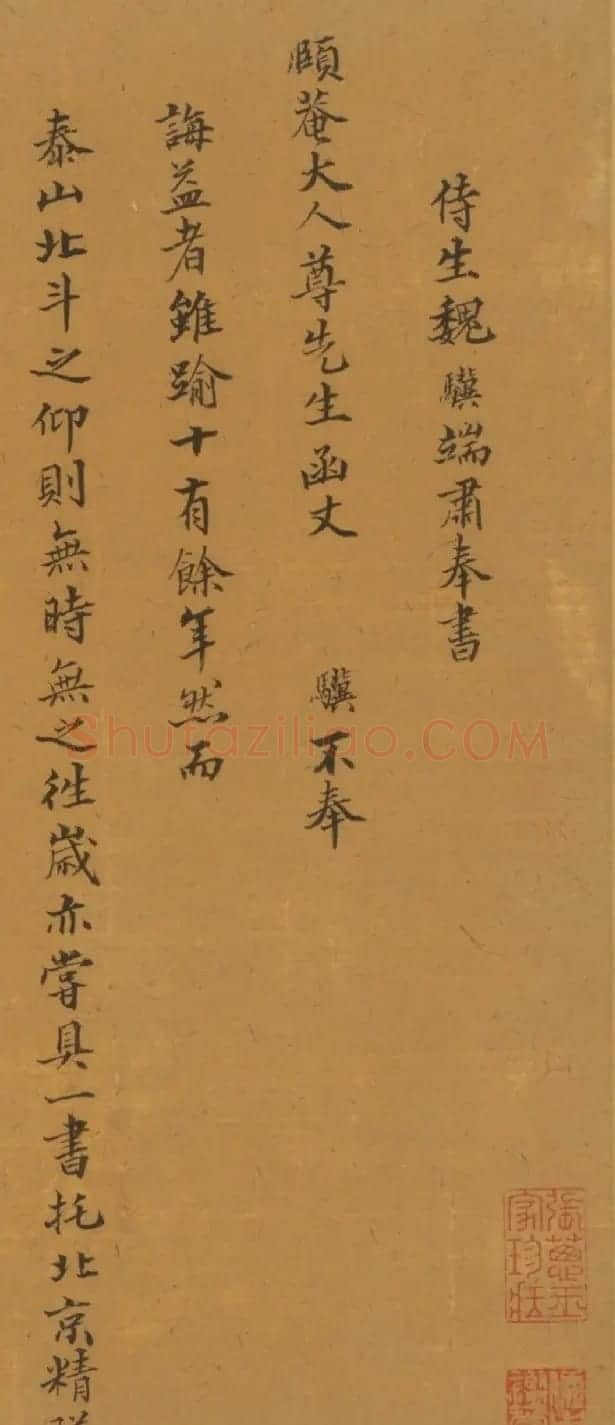 侍生魏驥端肅奉書
頤菴大人尊先生函丈 驥不奉
誨益者雖踰十有餘年然而
泰山北斗之仰則無時無之徃歲亦嘗具一書托北京精
Shufaziliao.COM
張蔥玉家珍藏